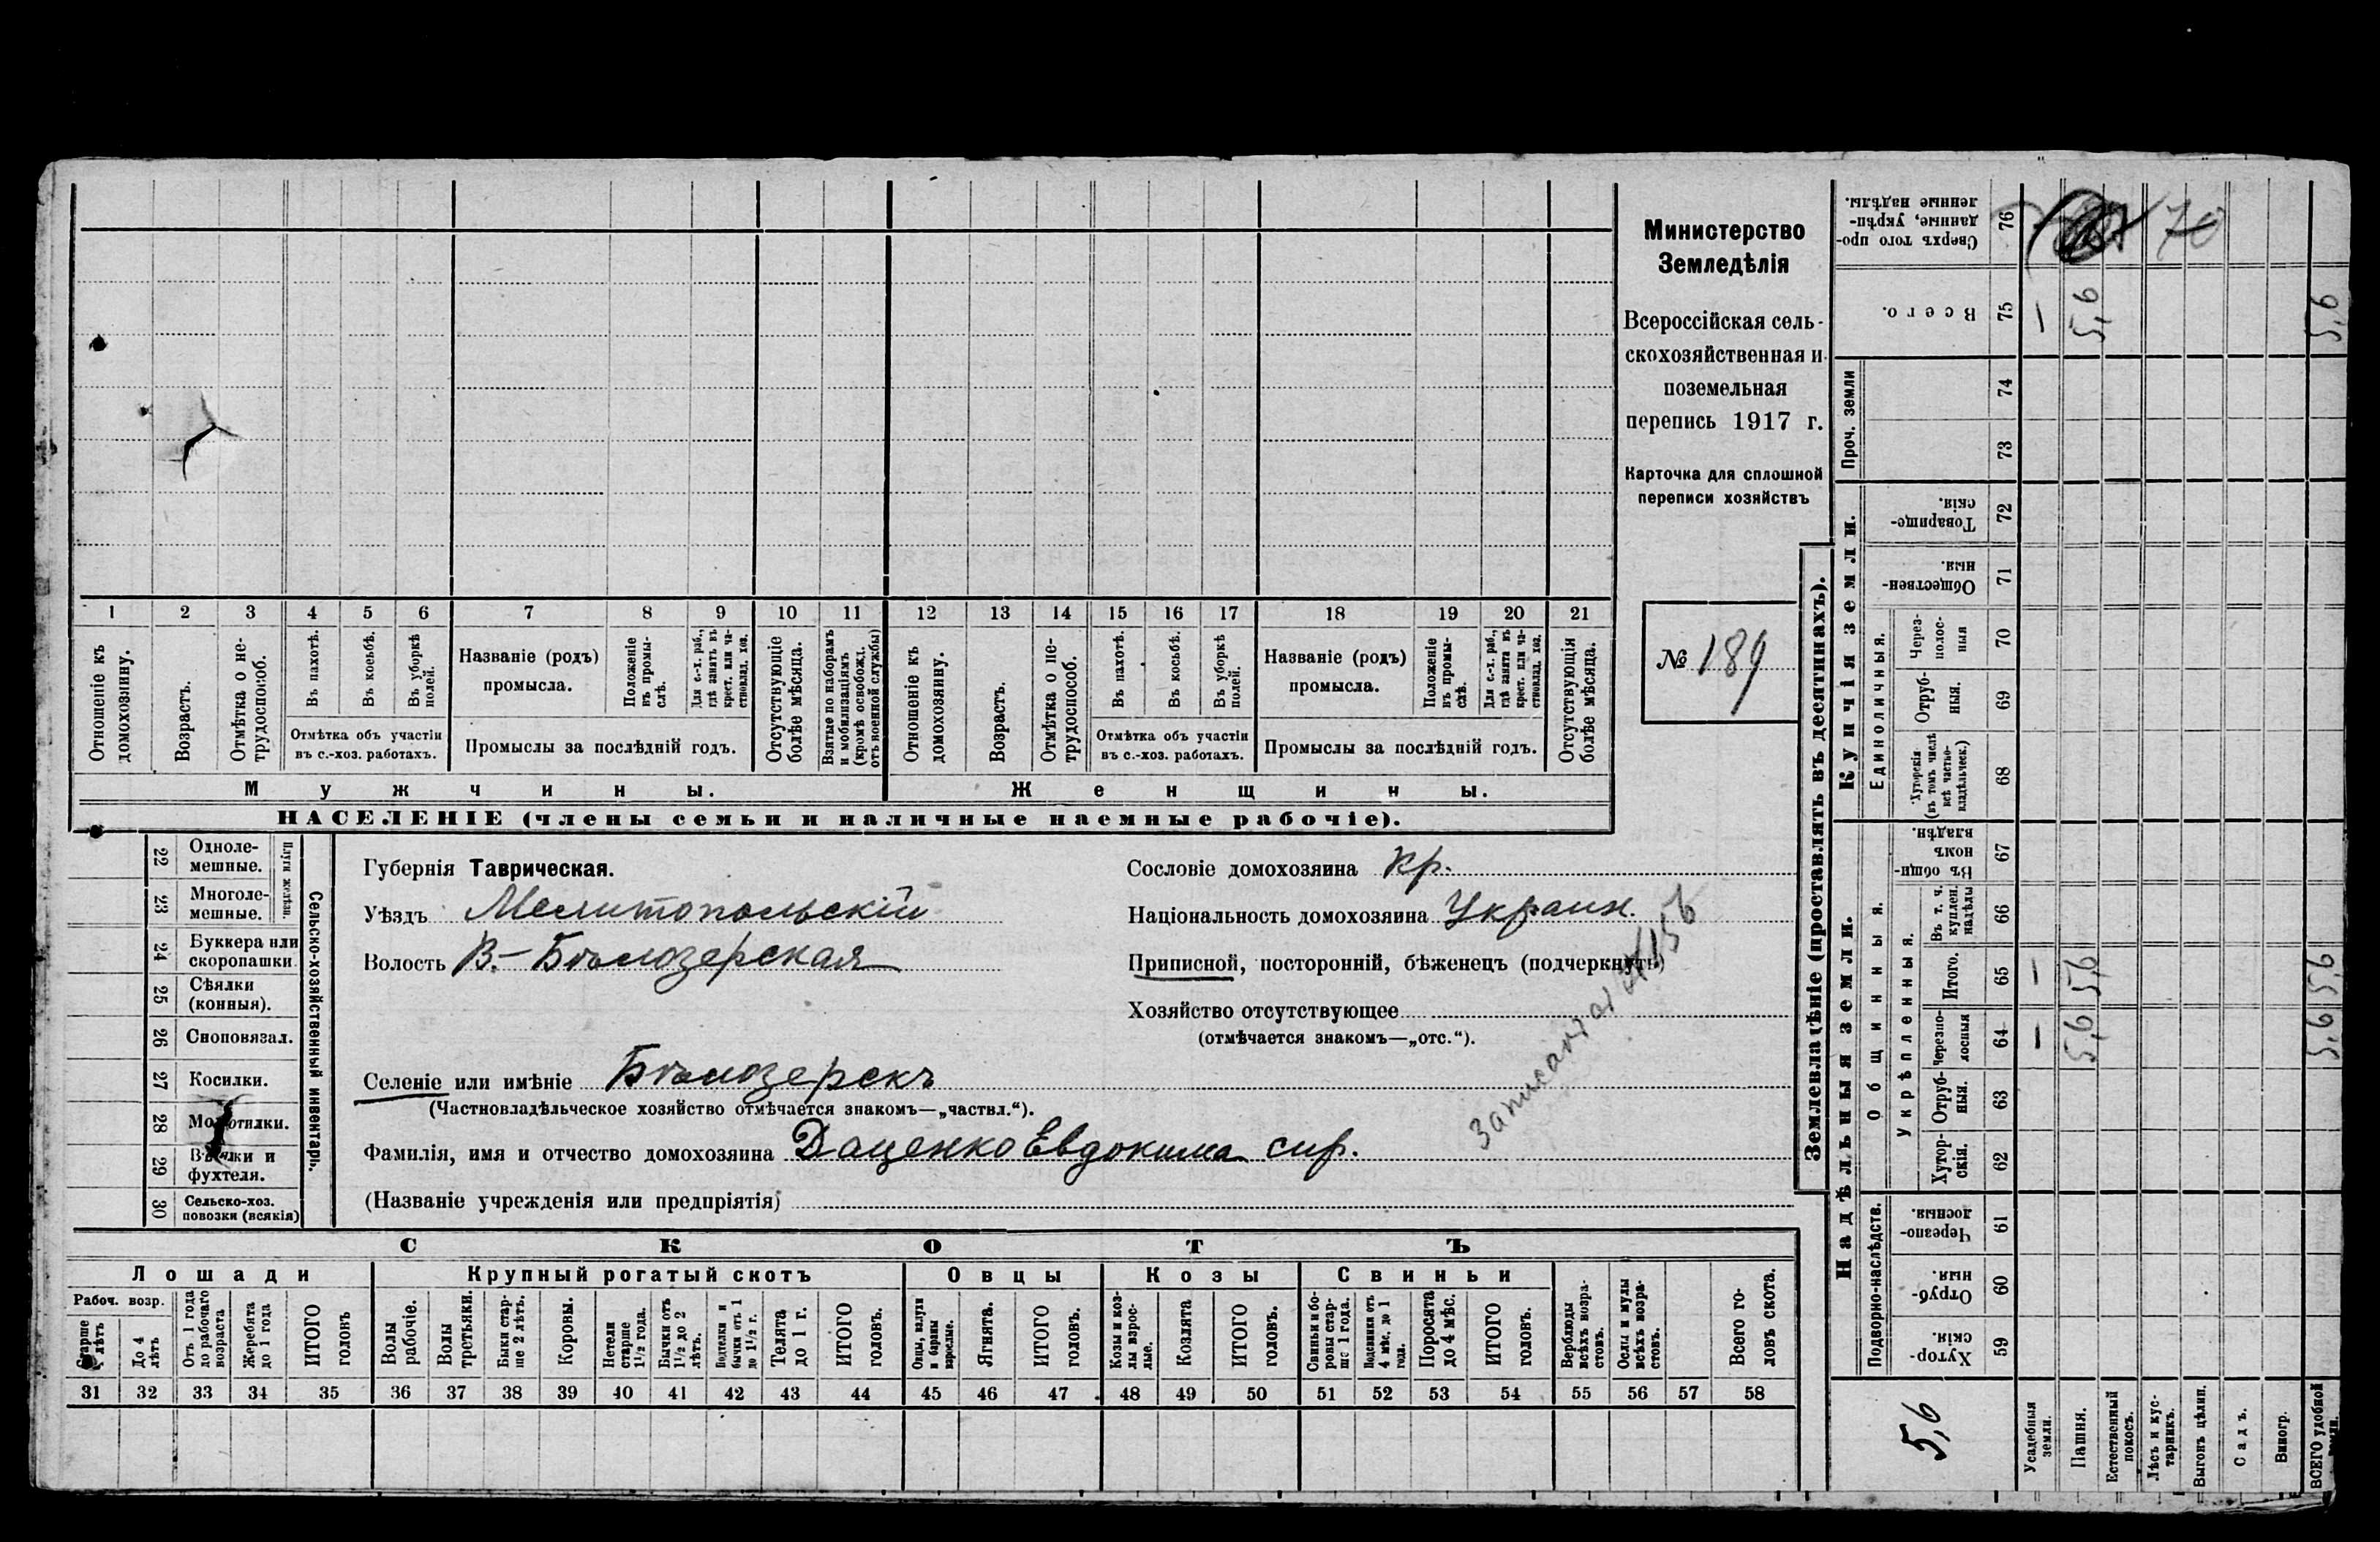 Министерство
Земледѣлія
Всероссійская сель-
скохозяйственная и
поземельная
перепись 1917 г.
Карточка для сплошной
переписи хозяйствъ
№ 189
1 2 3 4 5 6 7 8 9 10 11 12 13 14 15 16 17 18 19 20 21
Отношеніе къ домохозяину.
Возрастъ.
Отмѣтка о не-трудоспособ.
Въ пахотѣ.
Въ косьбѣ.
Въ уборкѣ полей.
Отмѣтка объ участіи
въ с.-хоз. работахъ.
Названіе (родъ)
промысла.
Положеніе въ промы-слѣ.
Для с.-х. раб., гдѣ занятъ въ крест. или ча-стновлад. хоз.
Промыслы за послѣдній годъ.
Отсутствующіе болѣе мѣсяца.
Взятые по наборамъ и мобилизаціямъ (кромѣ освобожд. отъ военной службы)
Отношеніе къ домохозяину.
Возрастъ.
Отмѣтка о не-трудоспособ.
Въ пахотѣ.
Въ косьбѣ.
Въ уборкѣ полей.
Отмѣтка объ участіи
въ с.-хоз. работахъ.
Названіе (родъ)
промысла.
Положеніе въ промы-слѣ.
Для с.-х. раб., гдѣ занята въ крест. или ча-стновлад. хоз.
Промыслы за послѣдній годъ.
Отсутствующія болѣе мѣсяца.
Мужчины.
Женщины.
НАСЕЛЕНІЕ (члены семьи и наличные наемные рабочіе).
22 Одноле-мешные.
23 Многоле-мешные.
Плуги желѣзн.
24 Буккера или скоропашки
25 Сѣялки (конныя).
26 Сноповязал.
27 Косилки.
28 Молотилки.
29 Вѣялки и фухтеля.
30 Сельско-хоз. повозки (всякія)
Сельско-хозяйственный инвентарь.
Губернія Таврическая.
Уѣздъ Мелитопольскій
Волость В.-Бѣлозерская
Селеніе или имѣніе Бѣлозерскъ
(Частновладѣльческое хозяйство отмѣчается знакомъ—„частвл.“).
Фамилія, имя и отчество домохозяина Даценко Евдокима сир.
(Названіе учрежденія или предпріятія)
Сословіе домохозяина кр.
Національность домохозяина Украин.
Приписной, посторонній, бѣженецъ (подчеркнуть)
Хозяйство отсутствующее
(отмѣчается знакомъ—„отс.“).
СКОТЪ
Лошади
Крупный рогатый скотъ
Овцы
Козы
Свиньи
Рабоч. возр.
Старше лѣтъ
До 4 лѣтъ
Отъ 1 года до рабочаго возраста
Жеребята до 1 года
ИТОГО головъ
Волы рабочіе.
Волы третьяки.
Быки стар-ше 2 лѣтъ.
Коровы.
Нетели старше 1½ года.
Бычки отъ 1½ до 2 лѣтъ.
Подтелки и бычки отъ 1 до 1½ г.
Телята до 1 г.
ИТОГО головъ.
Овцы, валухи и бараны взрослые.
Ягнята.
ИТОГО головъ.
Козы и коз-лы взрос-лые.
Козлята
ИТОГО головъ.
Свиньи и бо-ровы стар-ше 1 года.
Подсвинки отъ 4 мѣс. до 1 года.
Поросята до 4 мѣс.
ИТОГО головъ.
Верблюды всѣхъ возра-стовъ.
Ослы и мулы всѣхъ возра-стовъ.
Всего го-ловъ скота.
31 32 33 34 35 36 37 38 39 40 41 42 43 44 45 46 47 48 49 50 51 52 53 54 55 56 57 58
Землевладѣніе (проставлять въ десятинахъ).
Надѣльныя земли.
Купчія земли.
Проч. земли
Подворно-наслѣдств.
Общинныя.
Укрѣпленныя.
Единоличныя.
Хутор-скія. 59
Отруб-ныя. 60
Черезпо-лосныя. 61
Хутор-скія. 62
Отруб-ныя. 63
Черезпо-лосныя 64
Итого. 65
Въ т. ч. куплен. надѣлы 66
Въ общи-номъ владѣн. 67
Хуторскія (въ томъ числѣ всѣ частно-владѣльческ.) 68
Отруб-ныя. 69
Через-полос-ныя 70
Обществен-ныя. 71
Товарище-скія. 72
73
74
Всего. 75
Сверхъ того про-данные, укрѣп-ленные надѣлы. 76
5,6
Усадебныя земли. — — —
Пашня. 5,6 5,6 5,6
Естественный покосъ.
Лѣсъ и кус-тарникъ.
Выгонъ цѣлин.
Садъ.
Виногр.
ВСЕГО удобной земли. 5,6 5,6 5,6
70